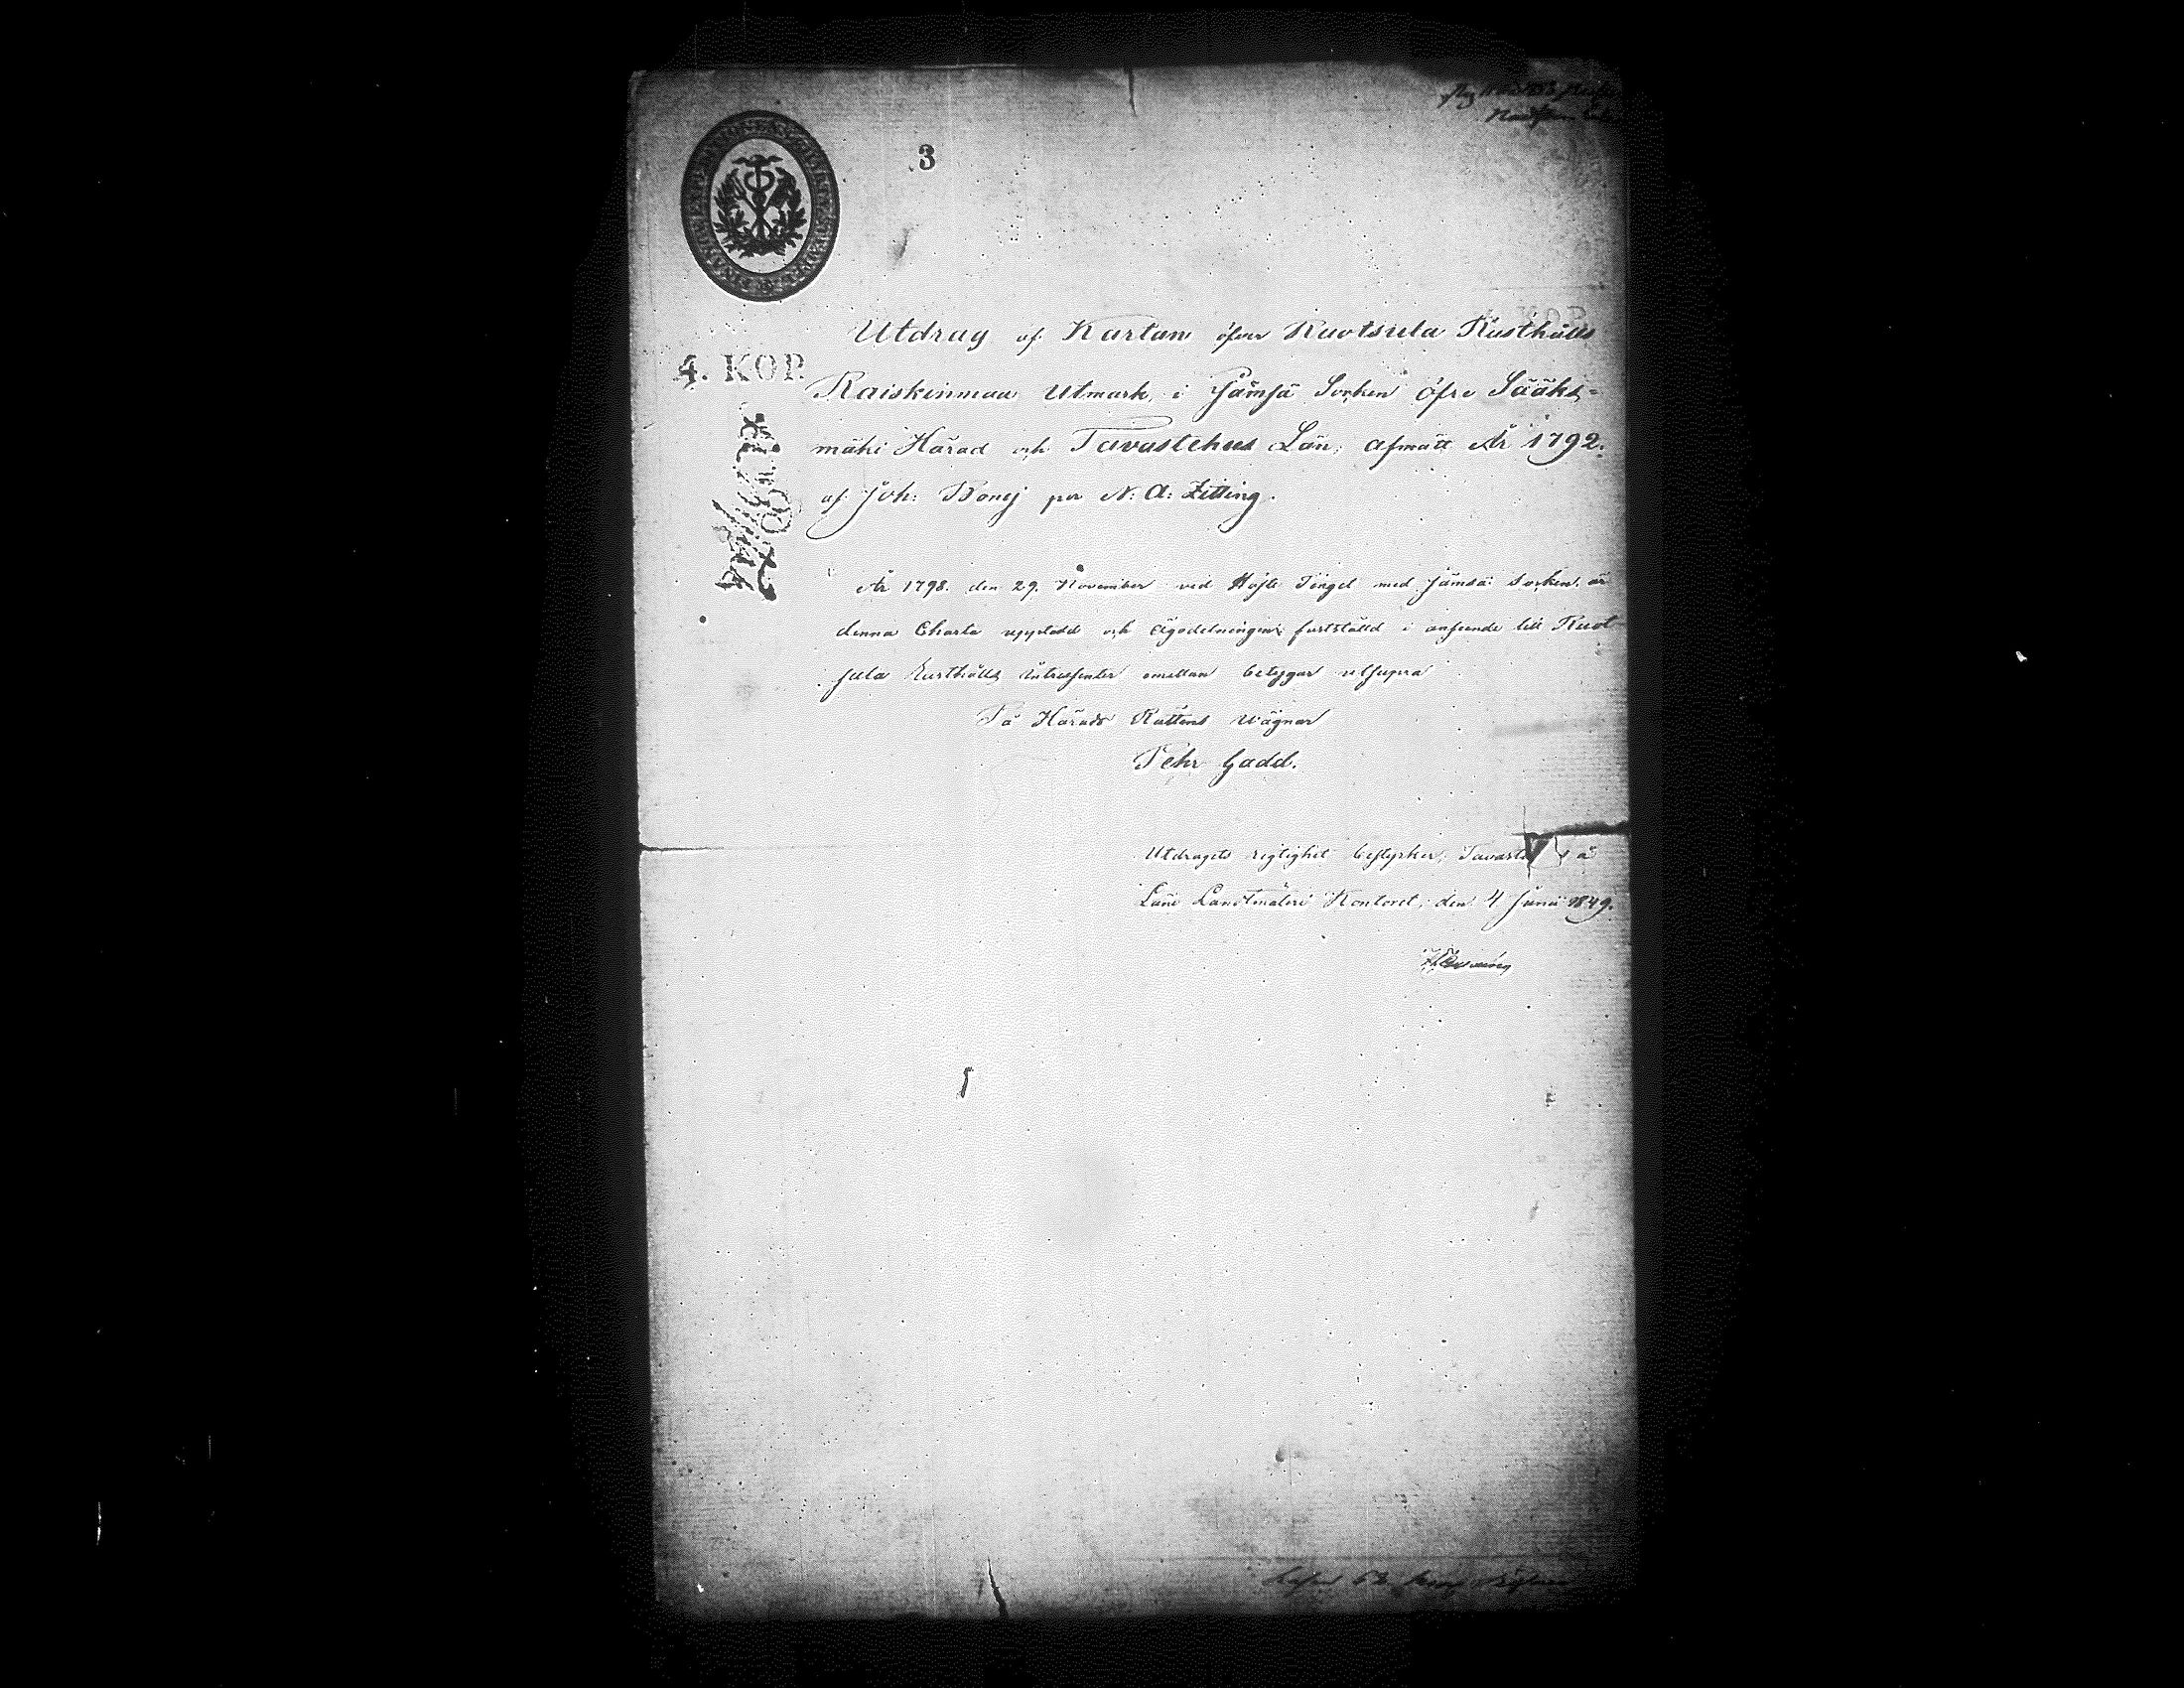 3
4. KOP.
Utdrag af Kartan öfver Ruotsula Rusthålls
Raiskinmaa Utmark, i Jämsä Socken Öfre Sääks-
mäki Härad och Tavastehus Län; afmätt År 1792.
af Joh: Bonej per N: A: Zitting.
År 1798. den 29. November vid Höste Tinget med Jämsä Socken är
denna Charta uppvist och Ägodelningen fastställd i anseende till Ruot
sula Rusthålls Intressenter emellan betygar utsupra
På Härads Rättens Wägnar
Pehr Gadd.
Utdragets rigtighet bestyrker, Tavaste å
Läns Landtmäteri Kontoret, den 4 Junii 1849.